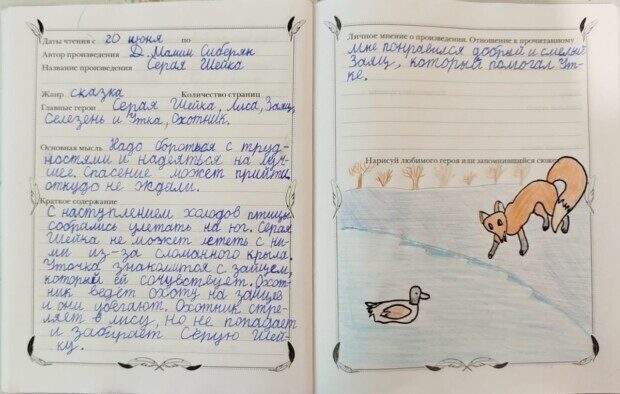 Даты чтения с 20 июня по
Автор произведения Д. Мамин Сибиряк
Название произведения Серая Шейка
Жанр сказка Количество страниц
Главные герои Серая Шейка, Лиса, Заяц,
Селезень и Утка, Охотник.
Основная мысль Надо бороться с труд-
ностями и надеяться на луч-
шее. Спасение может прийти
откуда не ждали.
Краткое содержание
С наступлением холодов птицы
собрались улетать на юг. Серая
Шейка не может лететь с ни-
ми из-за сломанного крыла.
Уточка знакомится с зайцем,
который ей сочувствует. Охот-
ник ведёт охоту на зайцев
и они убегают. Охотник стре-
ляет в лису, но не попадает
и забирает Серую Шей-
ку.
Личное мнение о произведении. Отношение к прочитанному
Мне понравился добрый и смелый
Заяц, который помогал Ут-
ке.
Нарисуй любимого героя или запомнившийся сюжет